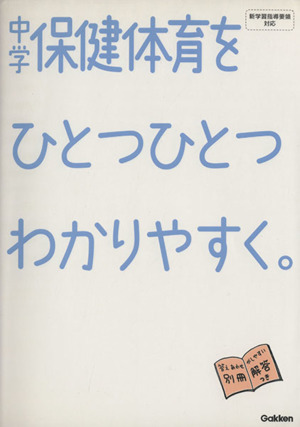 中学 保健体育を
ひとつひとつ
わかりやすく。
新学習指導要領
対応
答え あわせ がしやすい
別冊 解答
つき
Gakken